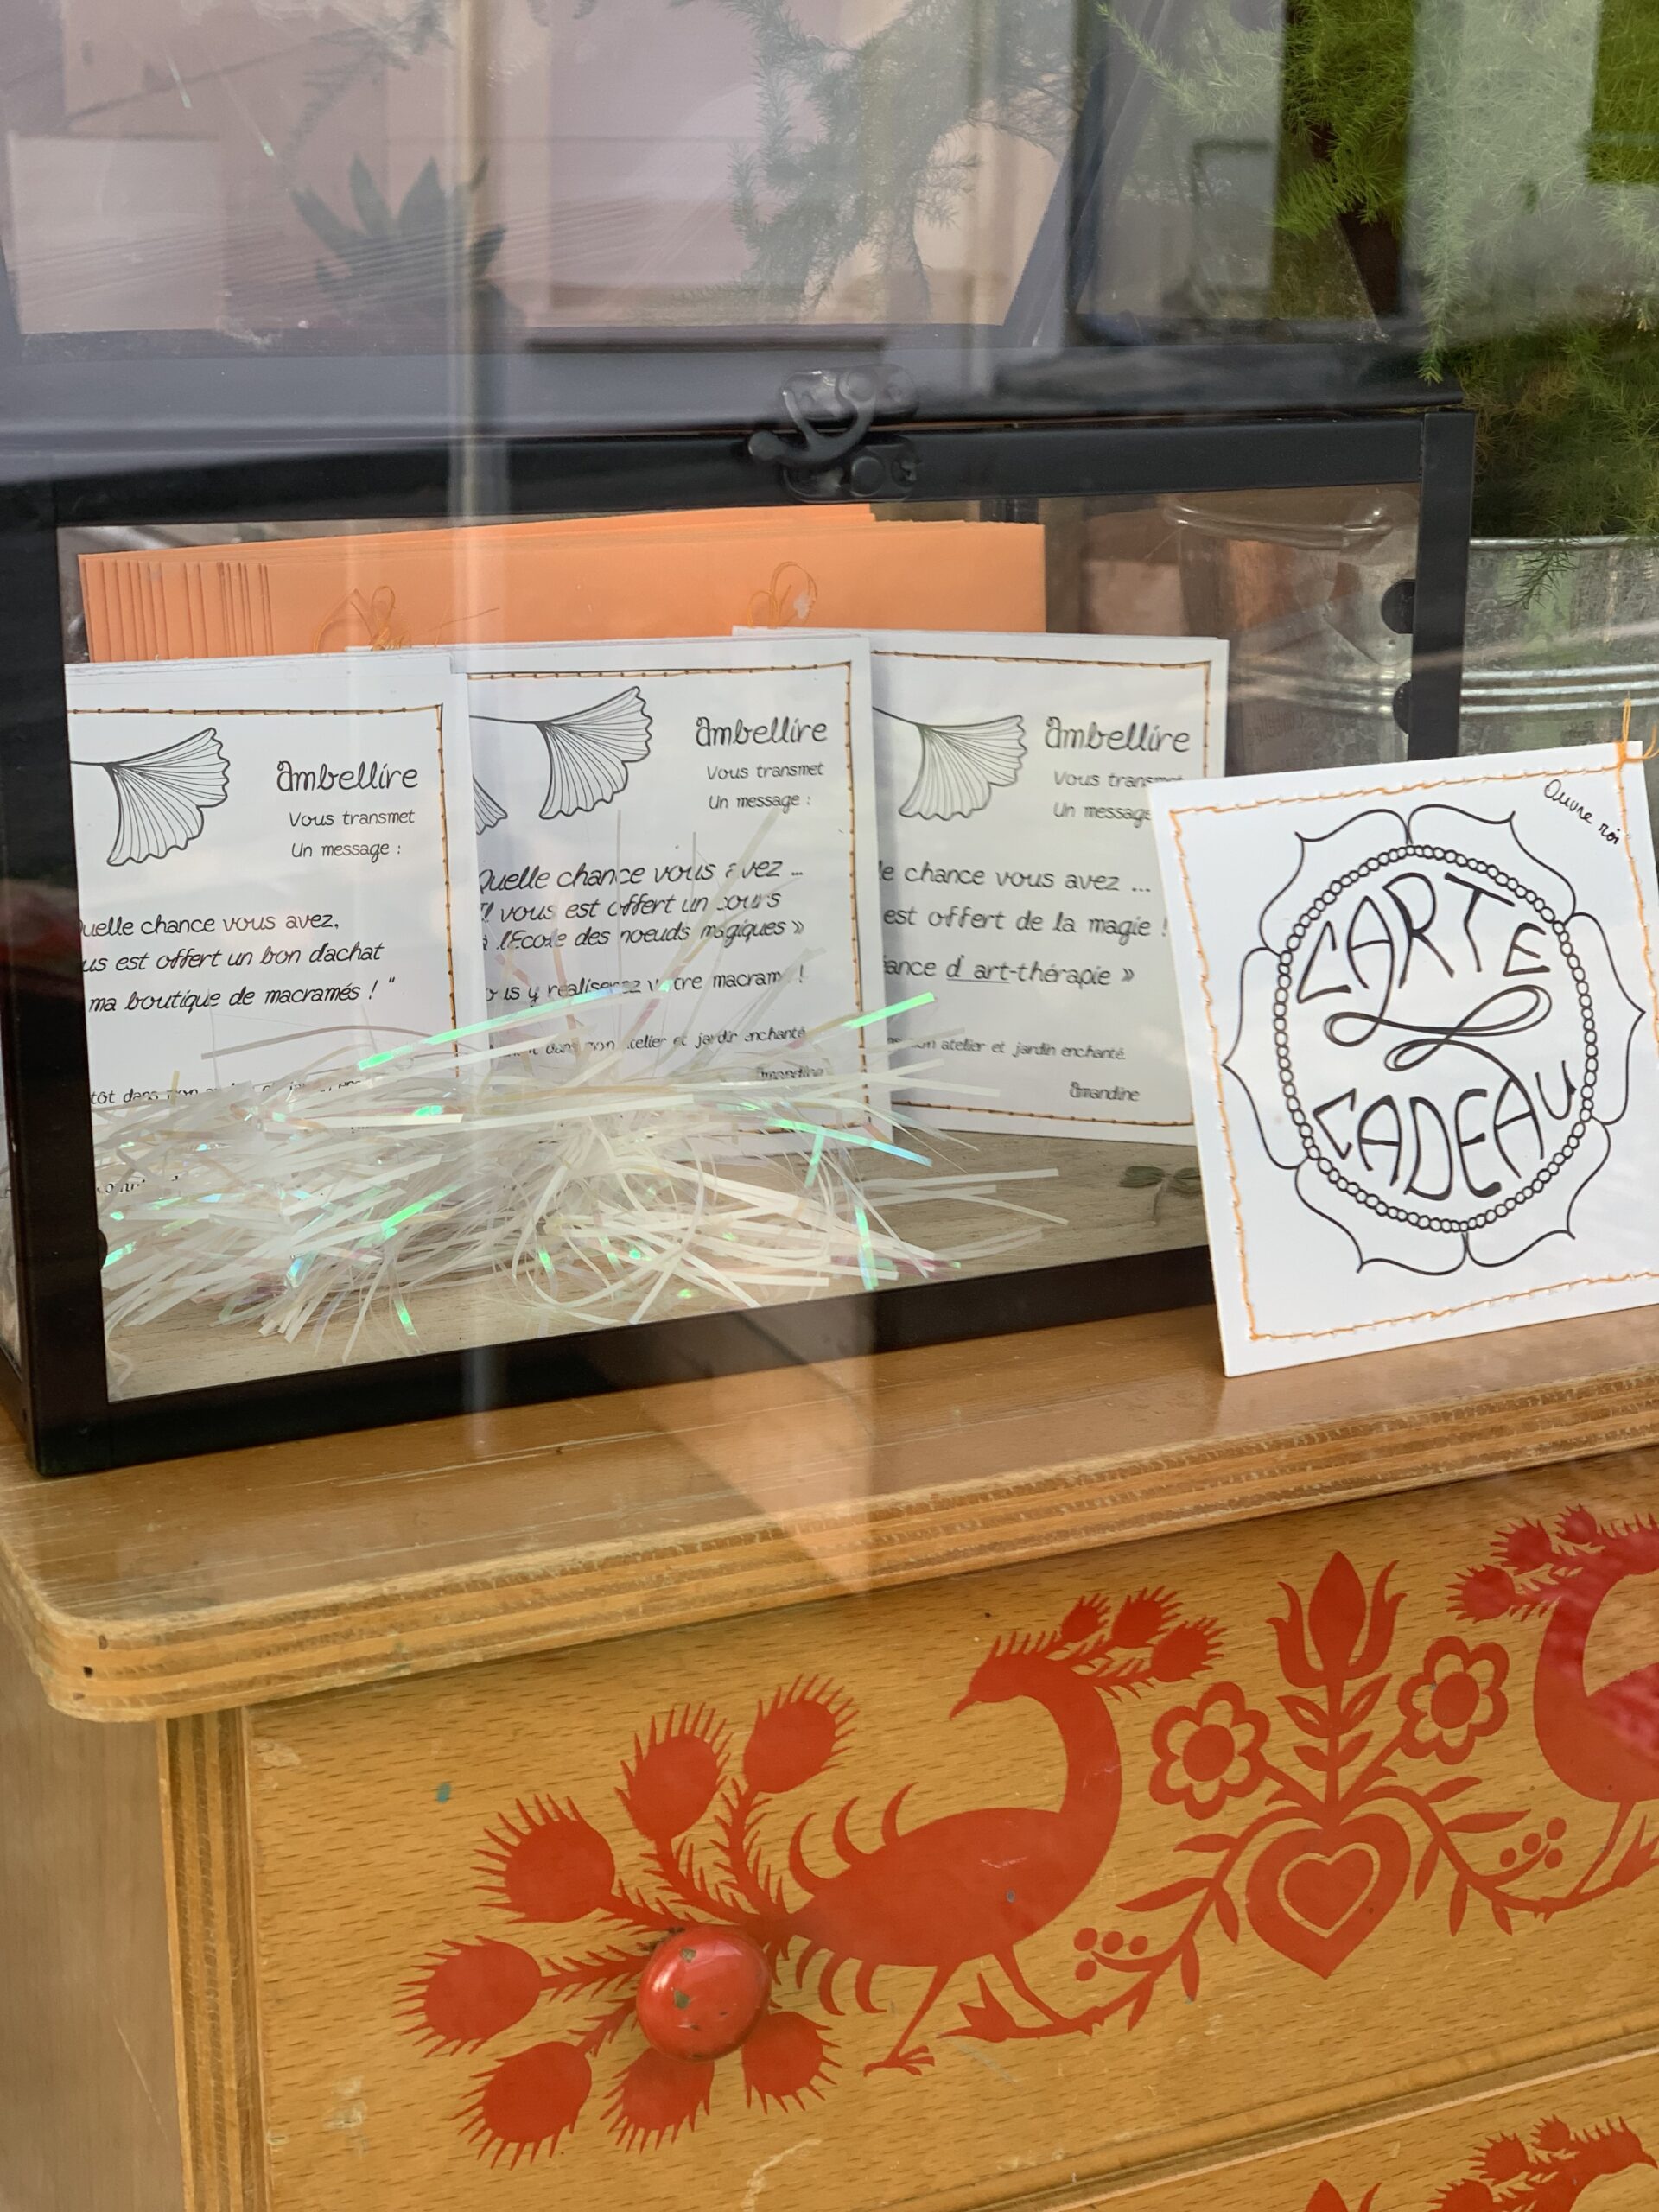 ambellire
Vous transmet
Un message :
uelle chance vous avez,
us est offert un bon d'achat
ma boutique de macramés ! "
tôt dans mon
ambellire
Vous transmet
Un message :
Quelle chance vous avez ...
Il vous est offert un cours
à l'Ecole des noeuds magiques »
ous y réaliserez votre macramé !
dans mon atelier et jardin enchanté
Amandine
ambellire
Vous transmet
Un message
le chance vous avez ...
est offert de la magie !
éance d'art-thérapie »
mon atelier et jardin enchanté.
Amandine
Ouvre moi
CARTE
CADEAU